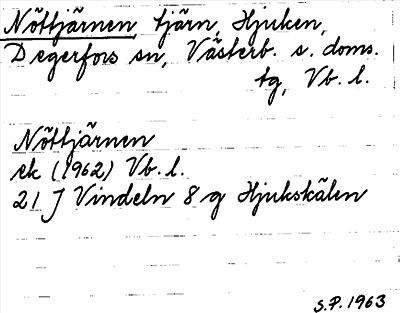 Nöttjärnen, tjärn, Hjuken,
Degerfors sn, Västerb. s. doms.
tg, Vb. l.
Nöttjärnen
ek (1962) Vb. l.
21 J Vindeln 8 g Hjukskälen
S.P. 1963